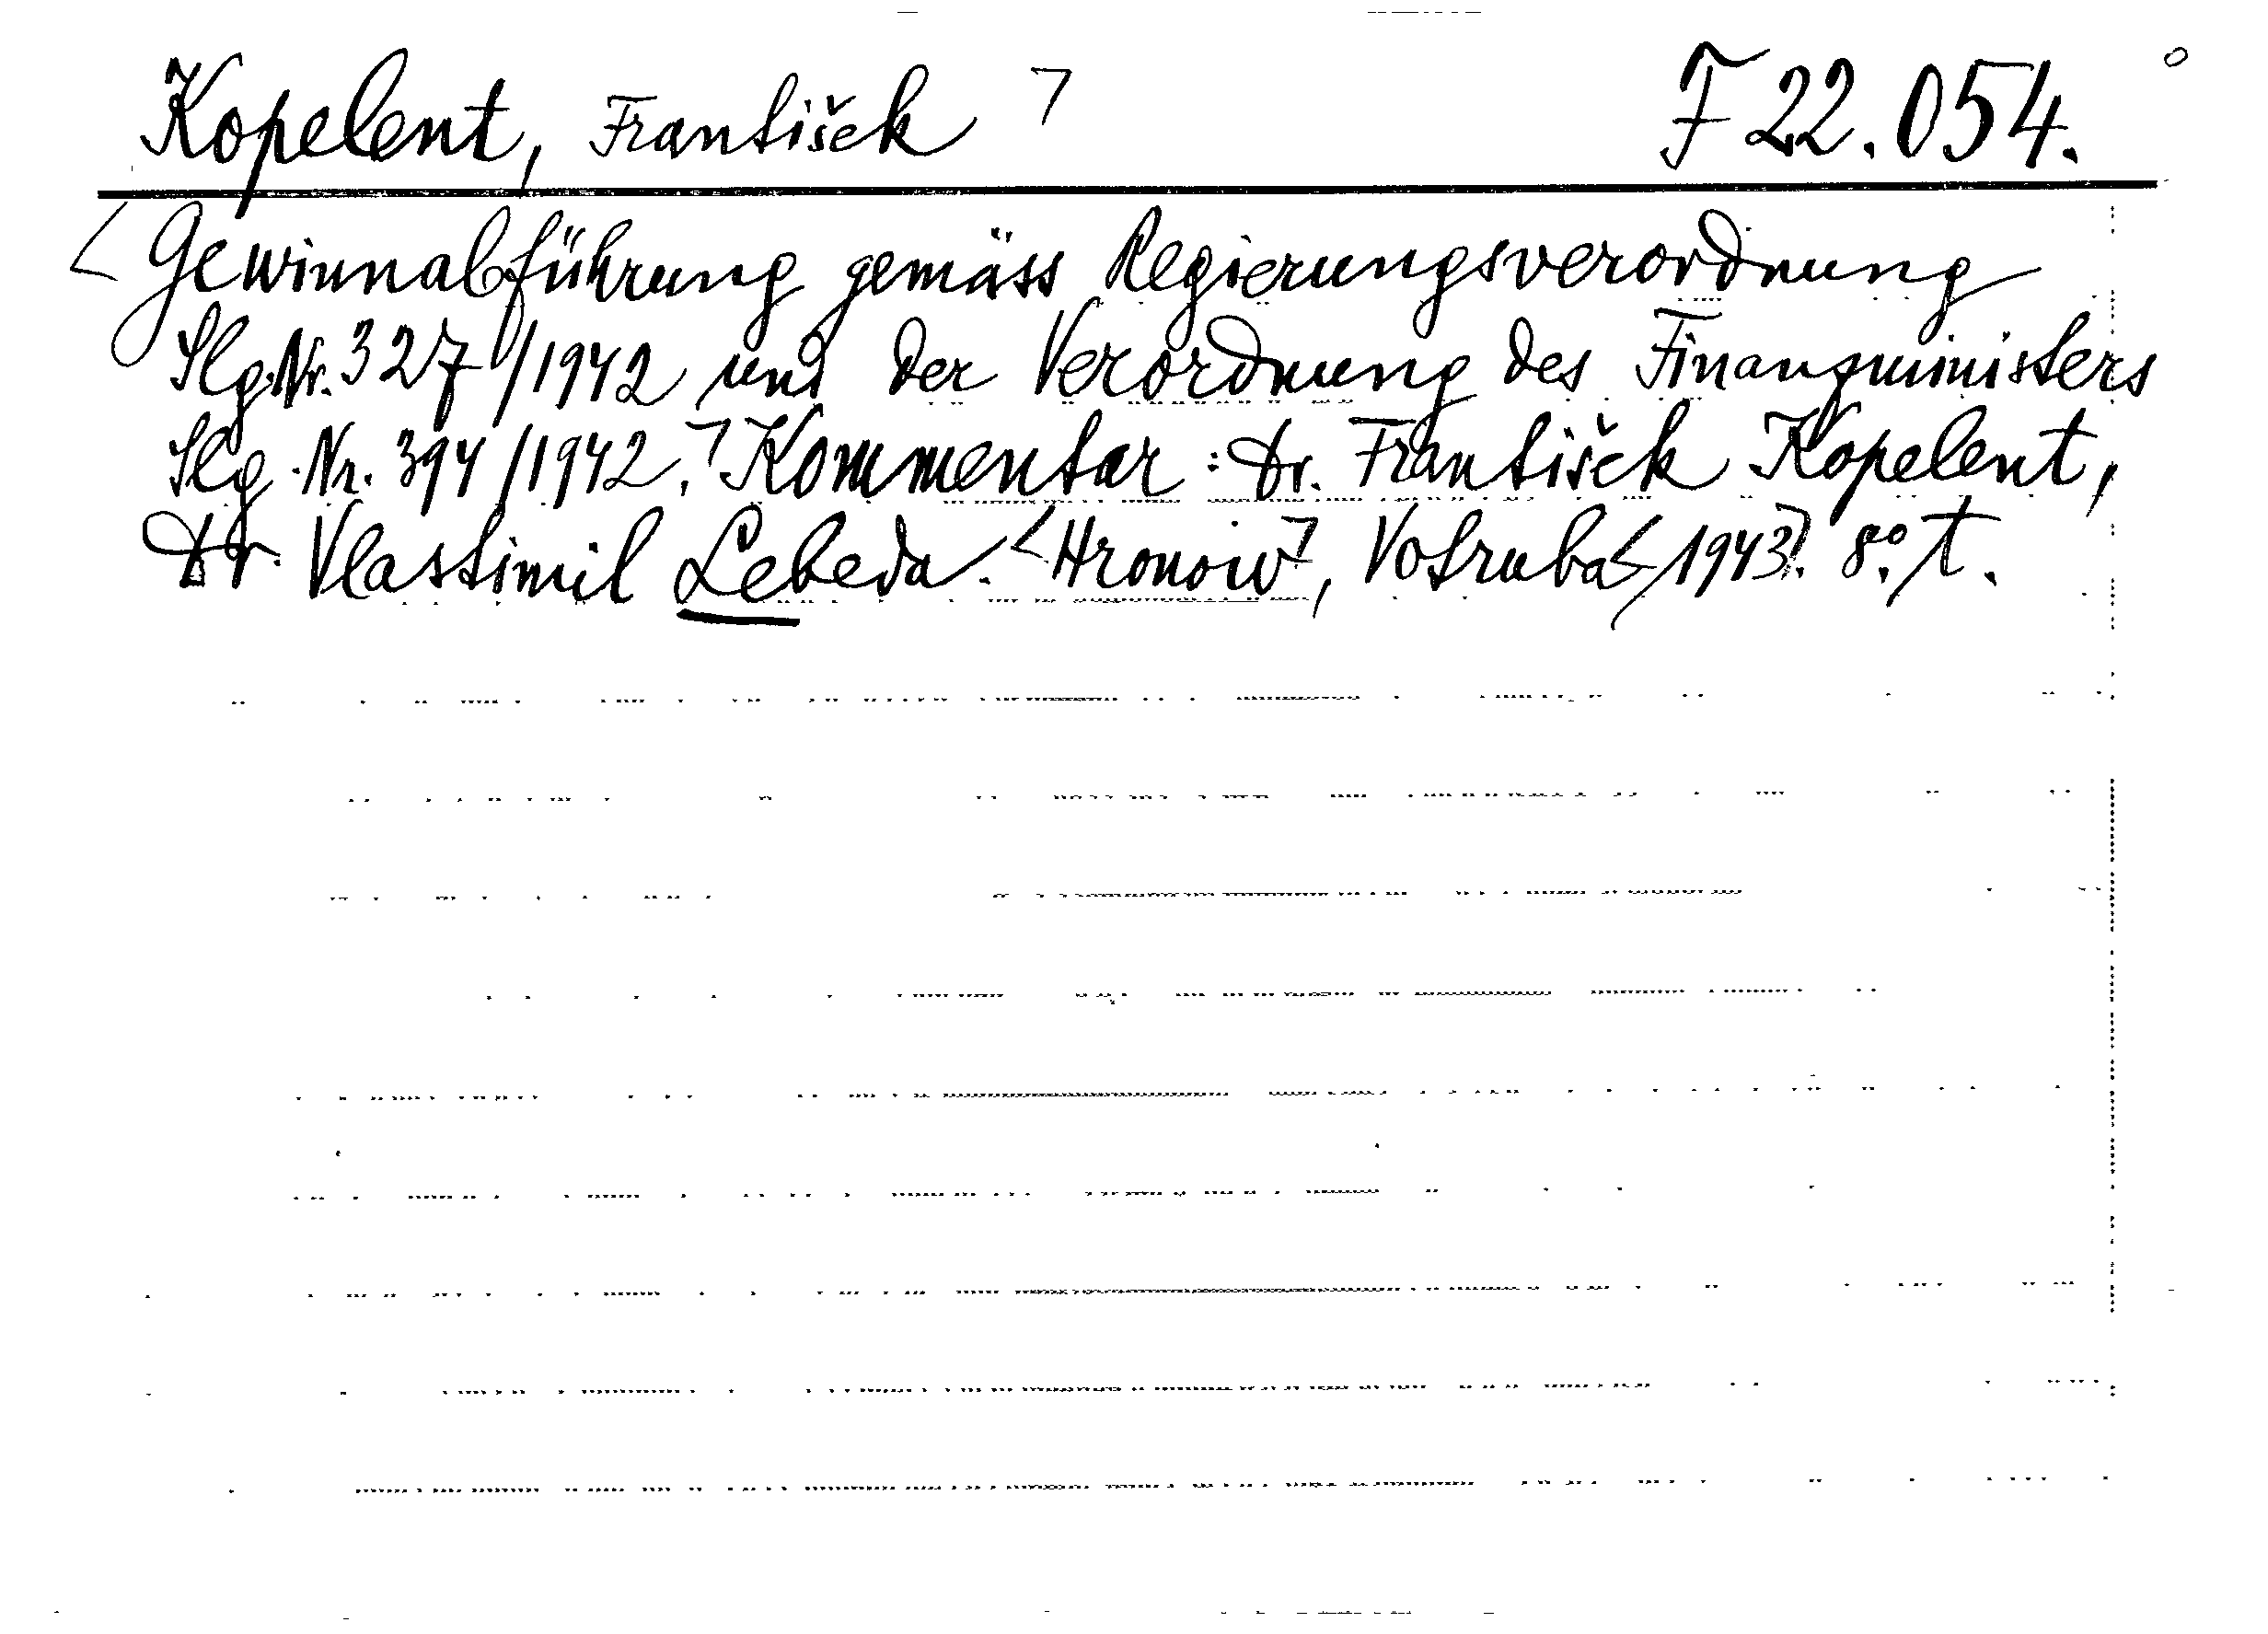 Kopelent, František ㄱ F 22.054.
< Gewinnabführung gemäss Regierungsverordnung
Slg. Nr. 327/1942 und der Verordnung des Finanzministers
Slg. Nr. 394/1942.ㄱ Kommentar: Dr. František Kopelent,
Dr. Vlastimil Lebeda. <Hronowㄱ, Votruba </1943?. 8°. T.